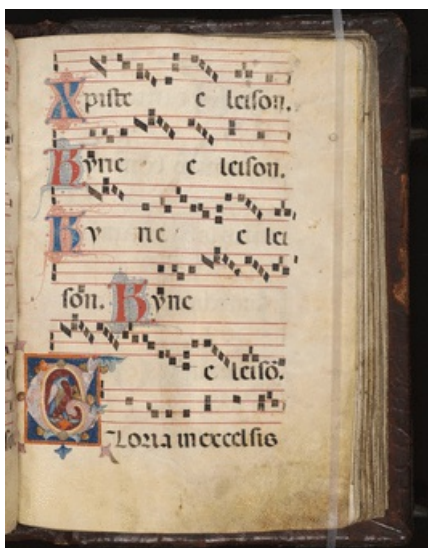 Xpiste e leison.
Kyrie e leison.
Ky rie e lei
son. Kyrie
e leisō.
Gloria in excelsis